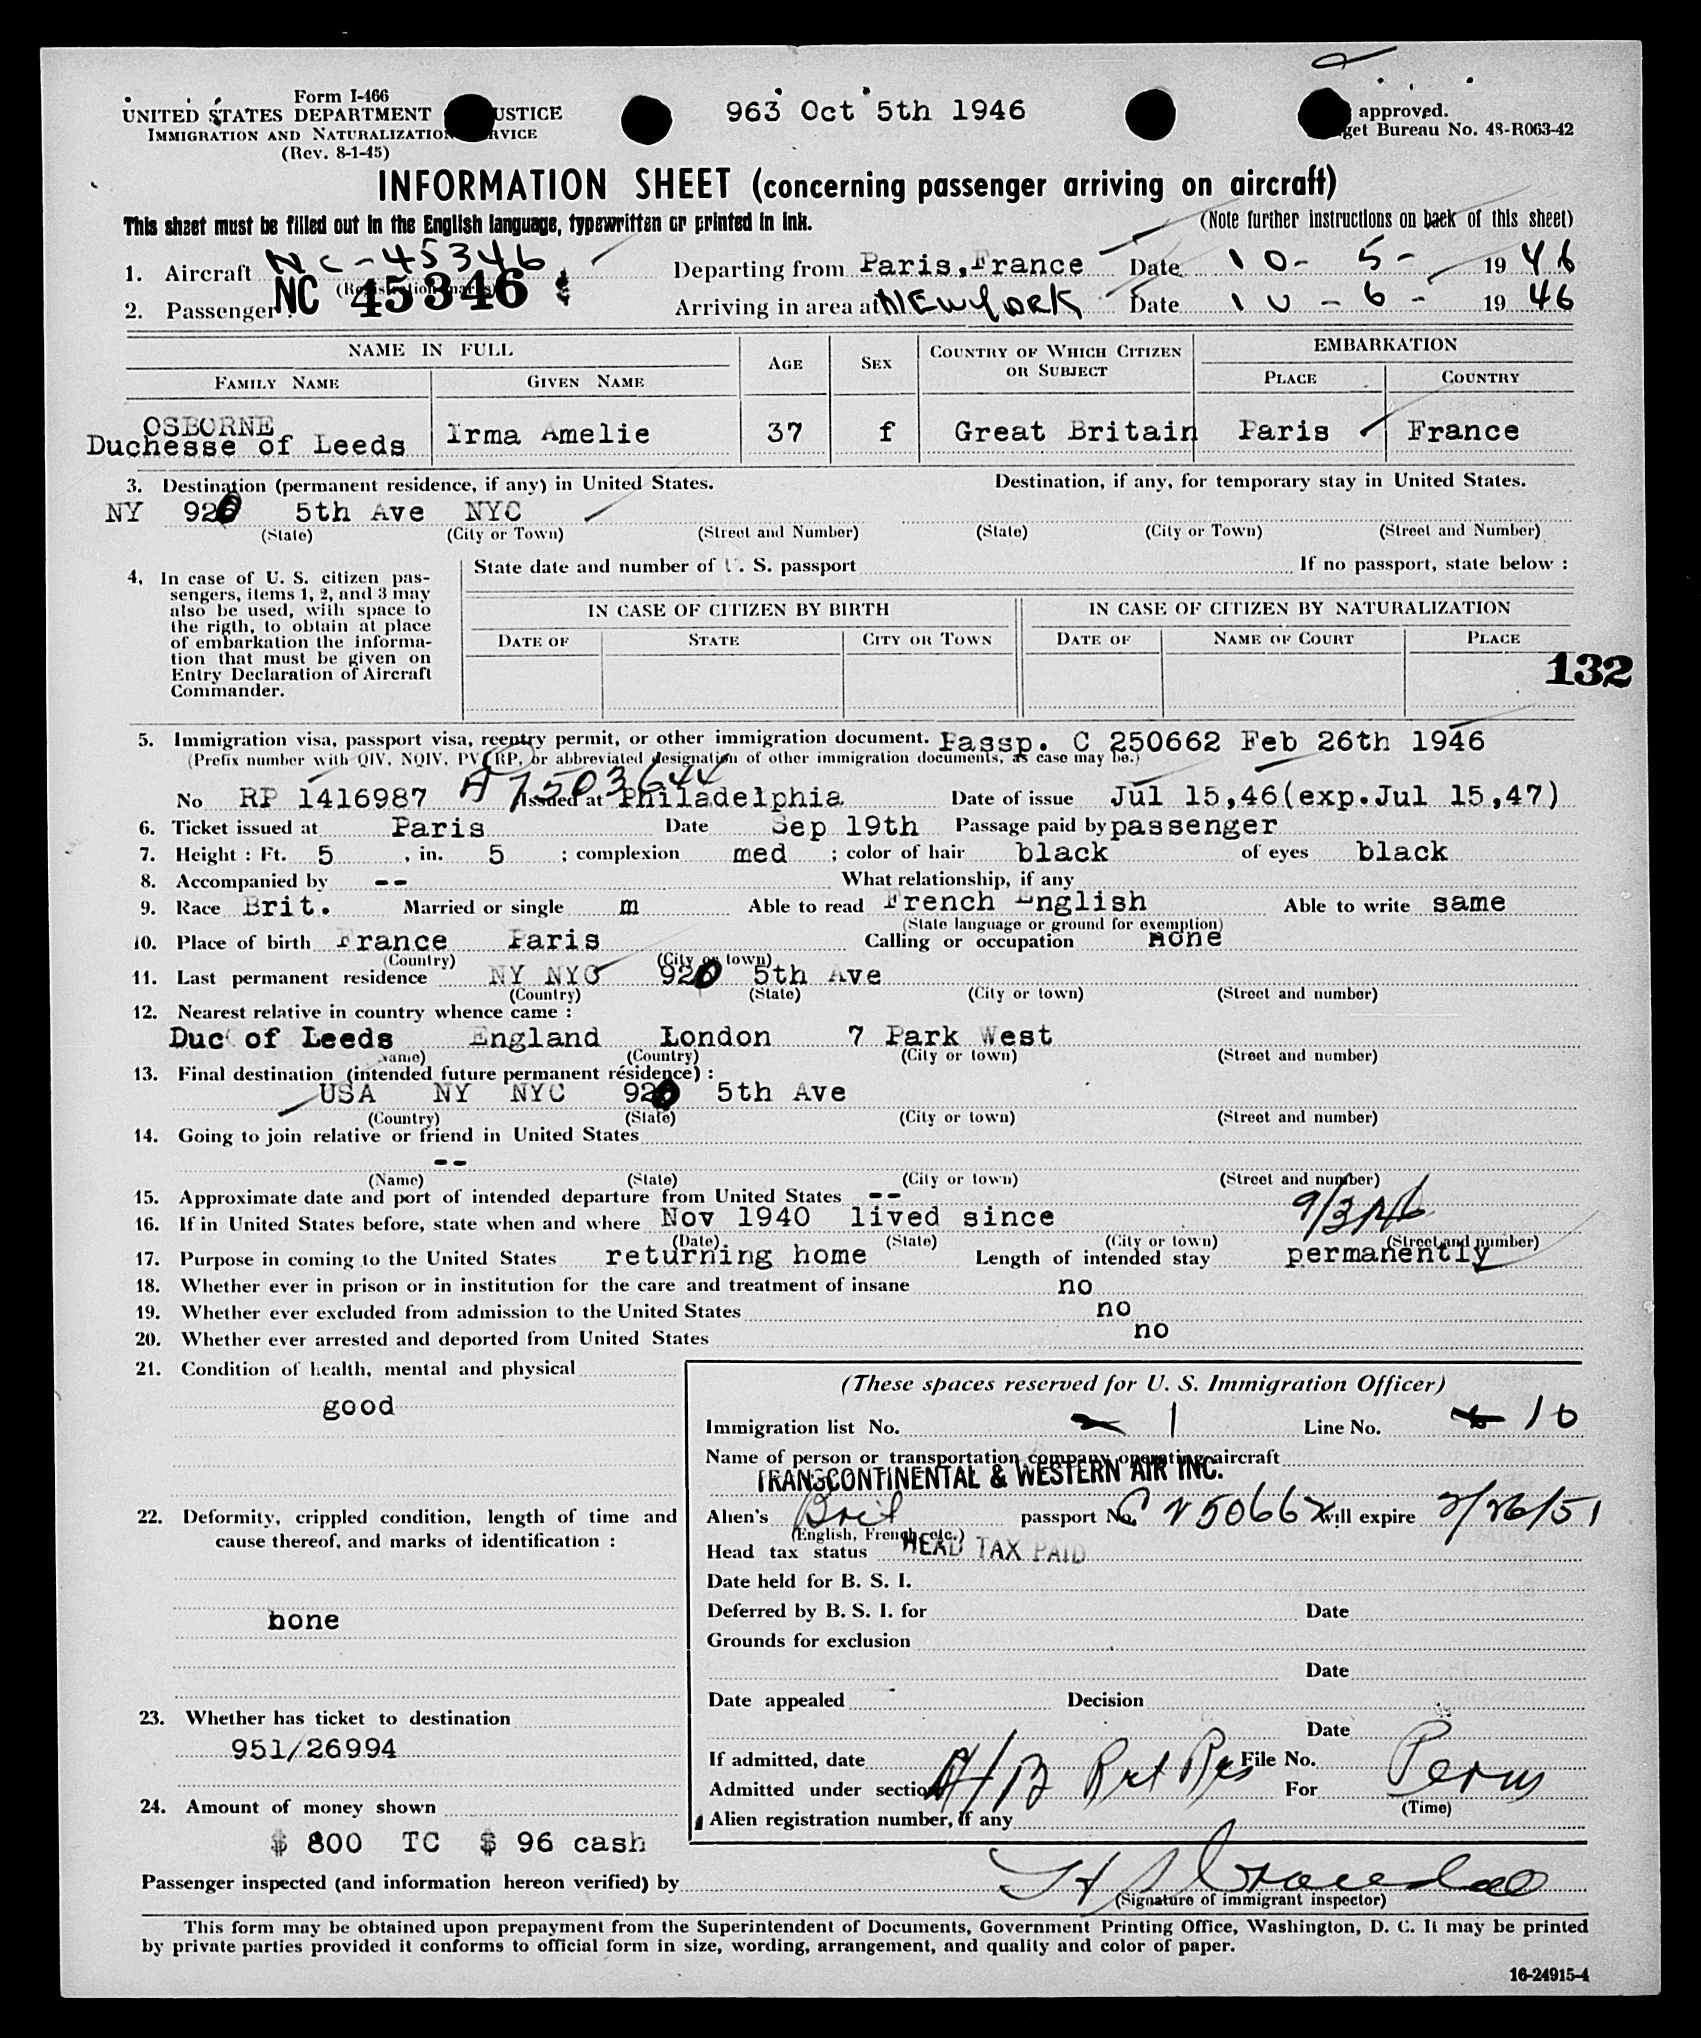 Form I-466
UNITED STATES DEPARTMENT USTICE
963 Oct 5th 1946
approved.
IMMIGRATION AND NATURALIZATION RVICE
get Bureau No. 48-R063-42
(Rev. 8-1-45)
INFORMATION SHEET (concerning passenger arriving on aircraft)
This sheet must be filled out in the English language, typewritten or printed in ink.
(Note further instructions on back of this sheet)
1. Aircraft NC-45346 Departing from Paris, France Date 10-5- 1946
(Registration marks)
2. Passenger NC 45346 Arriving in area at NEW YORK Date 10-6- 1946
NAME IN FULL AGE SEX COUNTRY OF WHICH CITIZEN OR SUBJECT EMBARKATION
FAMILY NAME GIVEN NAME PLACE COUNTRY
OSBORNE
Duchesse of Leeds Irma Amelie 37 f Great Britain Paris France
3. Destination (permanent residence, if any) in United States. Destination, if any, for temporary stay in United States.
NY 920 5th Ave NYC
(State) (City or Town) (Street and Number) (State) (City or Town) (Street and Number)
4, In case of U. S. citizen pas-
sengers, items 1, 2, and 3 may
also be used, with space to
the rigth, to obtain at place
of embarkation the informa-
tion that must be given on
Entry Declaration of Aircraft
Commander.
State date and number of U. S. passport If no passport, state below :
IN CASE OF CITIZEN BY BIRTH IN CASE OF CITIZEN BY NATURALIZATION
DATE OF STATE CITY OR TOWN DATE OF NAME OF COURT PLACE
132
5. Immigration visa, passport visa, reentry permit, or other immigration document. Passp. C 250662 Feb 26th 1946
(Prefix number with QIV, NQIV, PV, RP, or abbreviated designation of other immigration documents, as case may be.)
A 7503644
No RP 1416987 Issued at Philadelphia Date of issue Jul 15,46(exp.Jul 15,47)
6. Ticket issued at Paris Date Sep 19th Passage paid by passenger
7. Height : Ft. 5 , in. 5 ; complexion med ; color of hair black of eyes black
8. Accompanied by -- What relationship, if any
9. Race Brit. Married or single m Able to read French English Able to write same
(State language or ground for exemption)
10. Place of birth France Paris Calling or occupation none
(Country) (City or town)
11. Last permanent residence NY NYC 920 5th Ave
(Country) (State) (City or town) (Street and number)
12. Nearest relative in country whence came :
Duc of Leeds England London 7 Park West
(Name) (Country) (City or town) (Street and number)
13. Final destination (intended future permanent résidence) :
USA NY NYC 920 5th Ave
(Country) (State) (City or town) (Street and number)
14. Going to join relative or friend in United States
--
(Name) (State) (City or town) (Street and number)
15. Approximate date and port of intended departure from United States --
16. If in United States before, state when and where Nov 1940 lived since 9/3/46
(Date) (State) (City or town) (Street and number)
17. Purpose in coming to the United States returning home Length of intended stay permanently
18. Whether ever in prison or in institution for the care and treatment of insane no
19. Whether ever excluded from admission to the United States no
20. Whether ever arrested and deported from United States no
21. Condition of health, mental and physical
good
22. Deformity, crippled condition, length of time and
cause thereof, and marks of identification :
none
23. Whether has ticket to destination
951/26994
24. Amount of money shown
$ 800 TC $ 96 cash
(These spaces reserved for U. S. Immigration Officer)
Immigration list No. 1 Line No. 10
Name of person or transportation company operating aircraft
TRANSCONTINENTAL & WESTERN AIR INC.
Alien's Brit passport No. C 250662 will expire 2/26/51
(English, French, etc.)
Head tax status HEAD TAX PAID
Date held for B. S. I.
Deferred by B. S. I. for Date
Grounds for exclusion
Date
Date appealed Decision
Date
If admitted, date File No.
Admitted under section Ret Res For Perm
(Time)
Alien registration number, if any
Passenger inspected (and information hereon verified) by
(Signature of immigrant inspector)
This form may be obtained upon prepayment from the Superintendent of Documents, Government Printing Office, Washington, D. C. It may be printed
by private parties provided it conforms to official form in size, wording, arrangement, and quality and color of paper.
16-24915-4